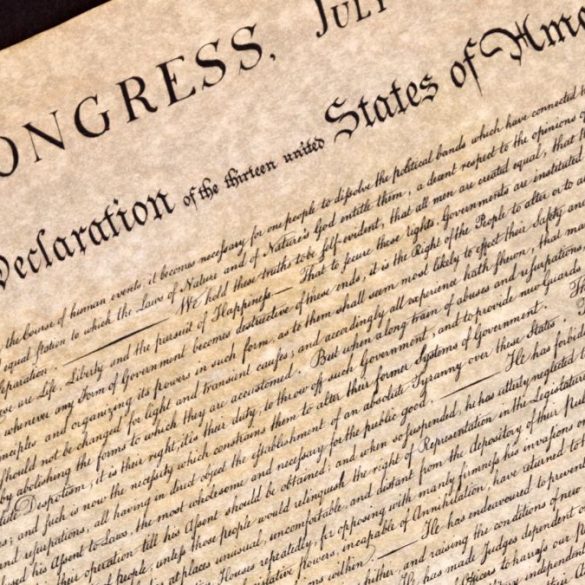 ONGRESS, JULY
Declaration of the thirteen united States of Ame
the course of human events, it becomes necessary for one people to dissolve the political bands which have connected
equal station to which the Laws of Nature and of Nature's God entitle them, a decent respect to the opinions
separation. — We hold these truths to be self-evident, that all men are created equal, that
are Life, Liberty and the pursuit of Happiness.— That to secure these rights, Governments are instituted
whenever any Form of Government becomes destructive of these ends, it is the Right of the People to alter or to
principles and organizing its powers in such form, as to them shall seem most likely to effect their Safety and
should not be changed for light and transient causes; and accordingly all experience hath shewn, that
by abolishing the forms to which they are accustomed. But when a long train of abuses and usurpations
Despotism, it is their right, it is their duty, to throw off such Government, and to provide new Guards
and such is now the necessity which constrains them to alter their former Systems of Government.
and usurpations, all having in direct object the establishment of an absolute Tyranny over these States.
his Assent to Laws, the most wholesome and necessary for the public good. — He has forbid
their operation till his Assent should be obtained; and when so suspended, he has utterly neglected
people, unless those people would relinquish the right of Representation in the Legislature
at places unusual, uncomfortable, and distant from the depository of their
Houses repeatedly, for opposing with manly firmness his invasions
Powers, incapable of Annihilation, have returned to
within. — He has endeavoured to prevent
and raising the conditions of new
He has made Judges dependent